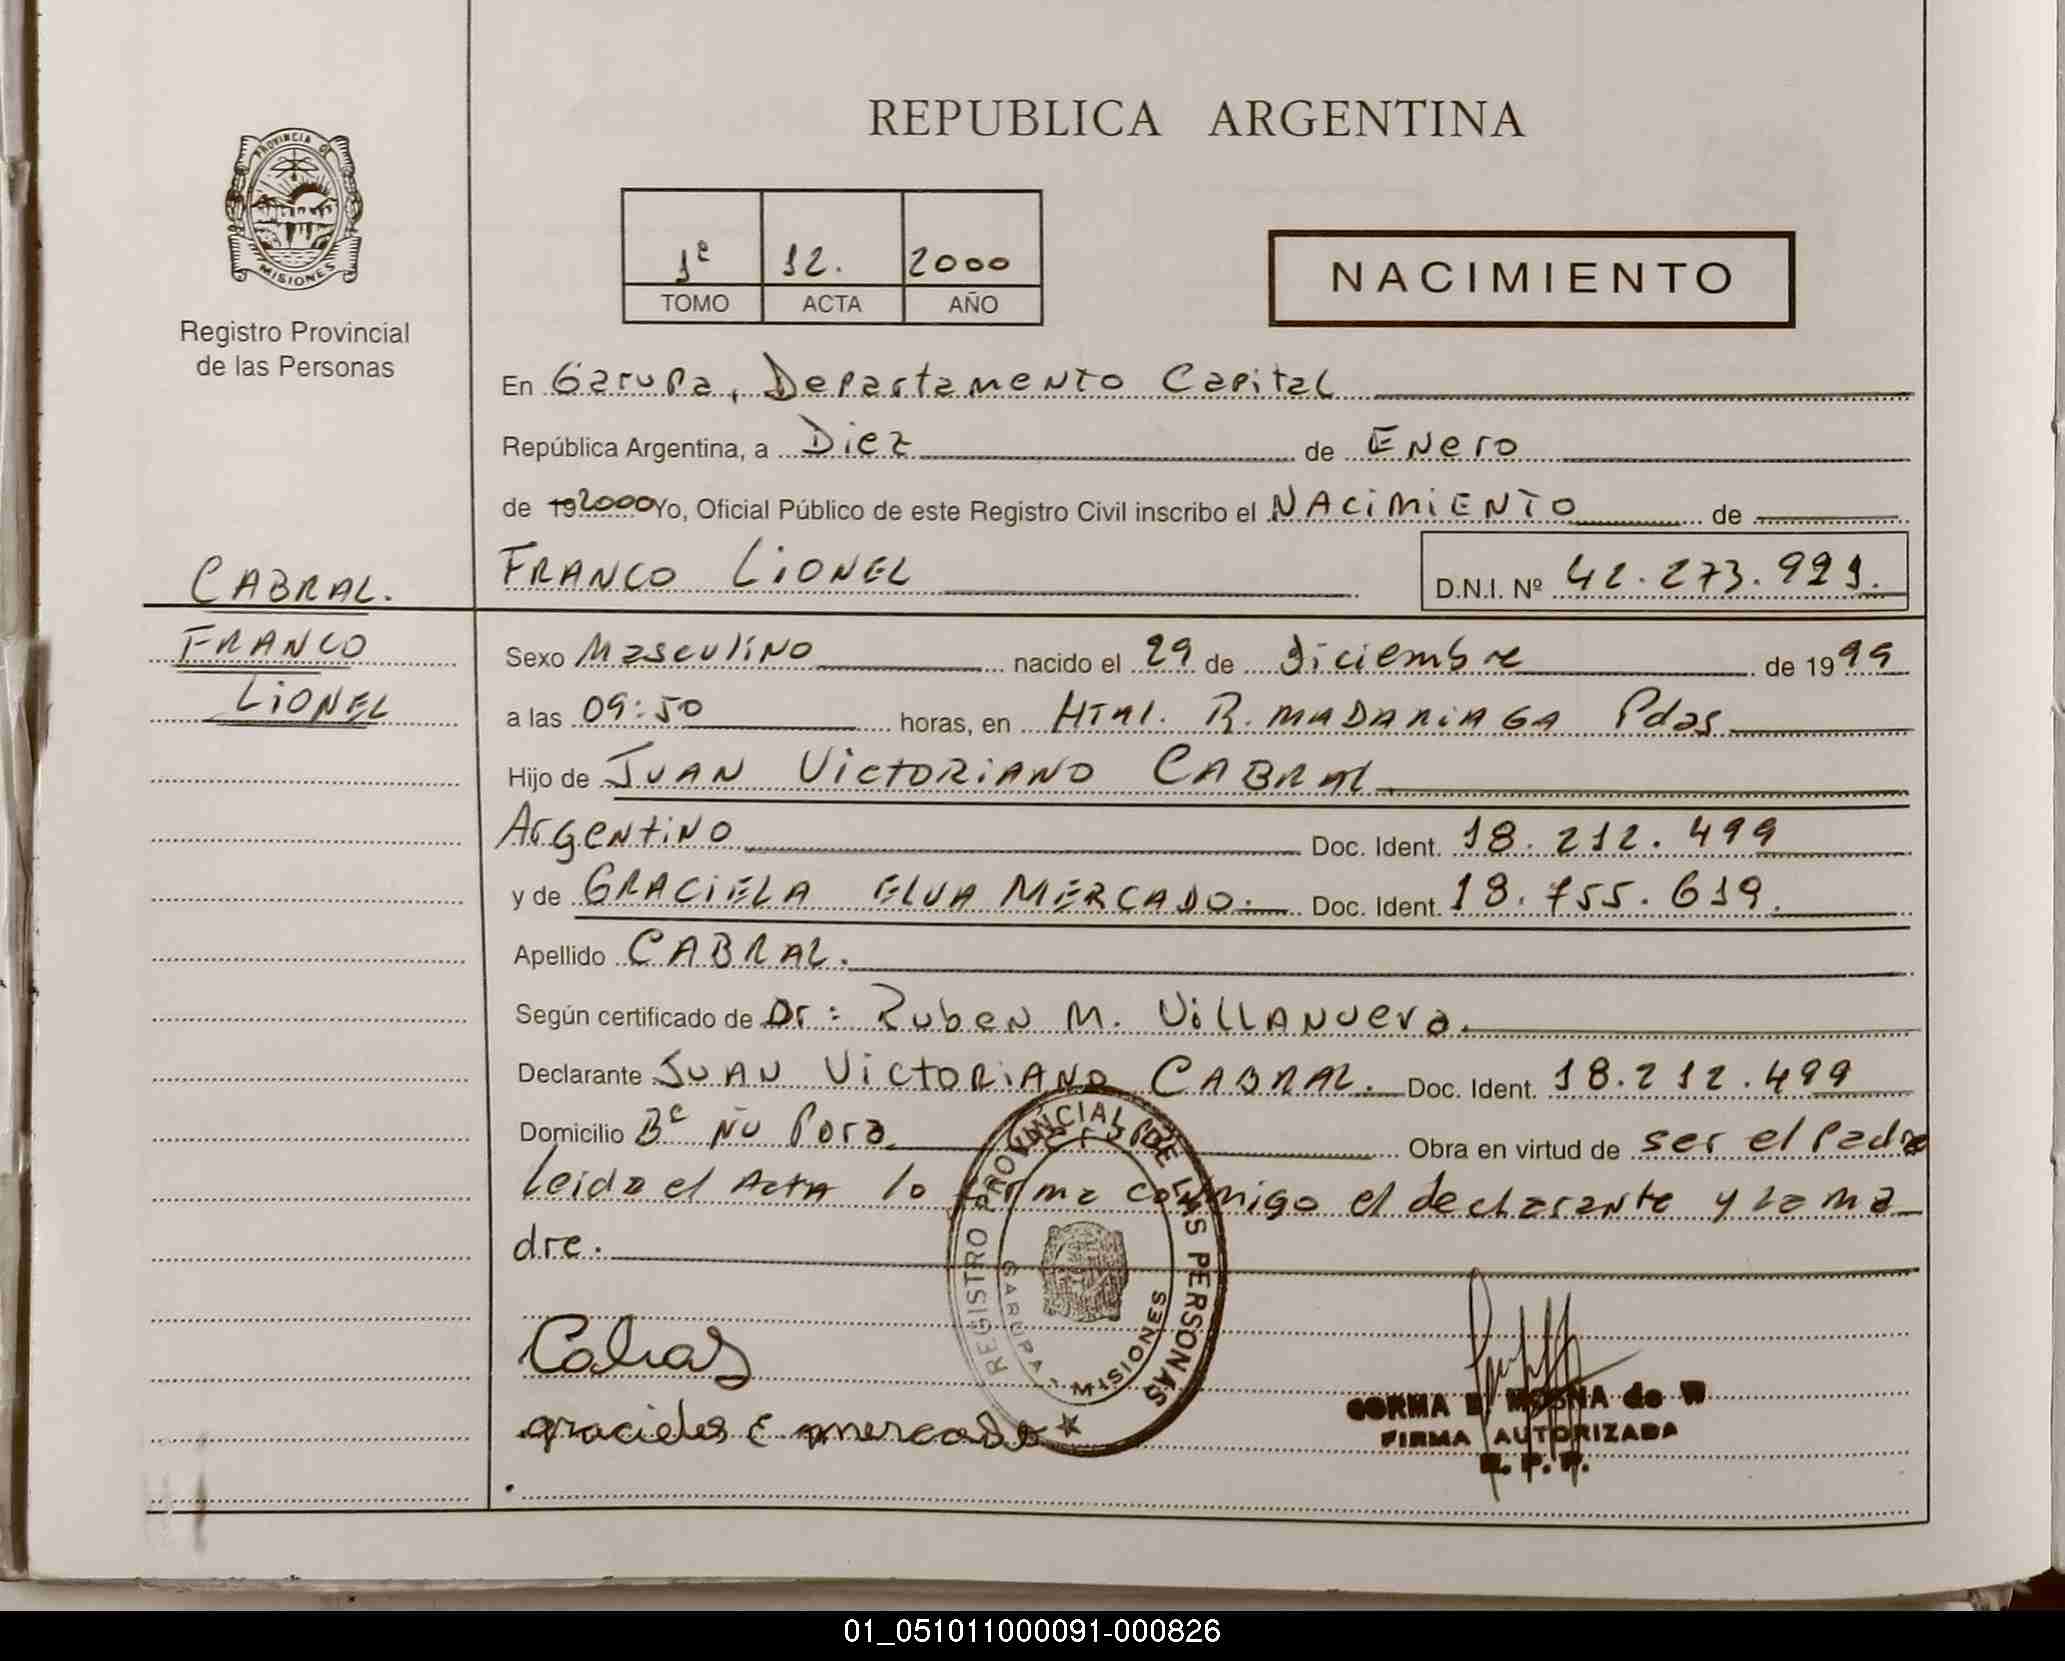 REPUBLICA ARGENTINA
PROVINCIA DE
MISIONES
Registro Provincial
de las Personas
1º 12. 2000
TOMO ACTA AÑO
NACIMIENTO
En Garupa, Departamento Capital
República Argentina, a Diez de Enero
de 19 2000 Yo, Oficial Público de este Registro Civil inscribo el NACIMIENTO de
FRANCO LIONEL D.N.I. Nº 42.273.991.
CABRAL.
FRANCO
LIONEL
Sexo Masculino nacido el 29 de diciembre de 1999
a las 09:50 horas, en Htal. R. MADARIAGA Pdas
Hijo de JUAN VICTORIANO CABRAL
Argentino Doc. Ident. 18.212.499
y de GRACIELA ELVA MERCADO. Doc. Ident. 18.755.619.
Apellido CABRAL.
Según certificado de Dr: Ruben M. VILLANUEVA.
Declarante JUAN VICTORIANO CABRAL. Doc. Ident. 18.212.499
Domicilio Bº Ñu Pora Obra en virtud de ser el Padre
Leida el Acta lo firma conmigo el declarante y la ma
dre.
REGISTRO PROVINCIAL DE LAS PERSONAS
GARUPA - MISIONES
Cabral
graciela E mercado
MOSNA de W
FIRMA AUTORIZADA
R. P. P.
01_051011000091-000826